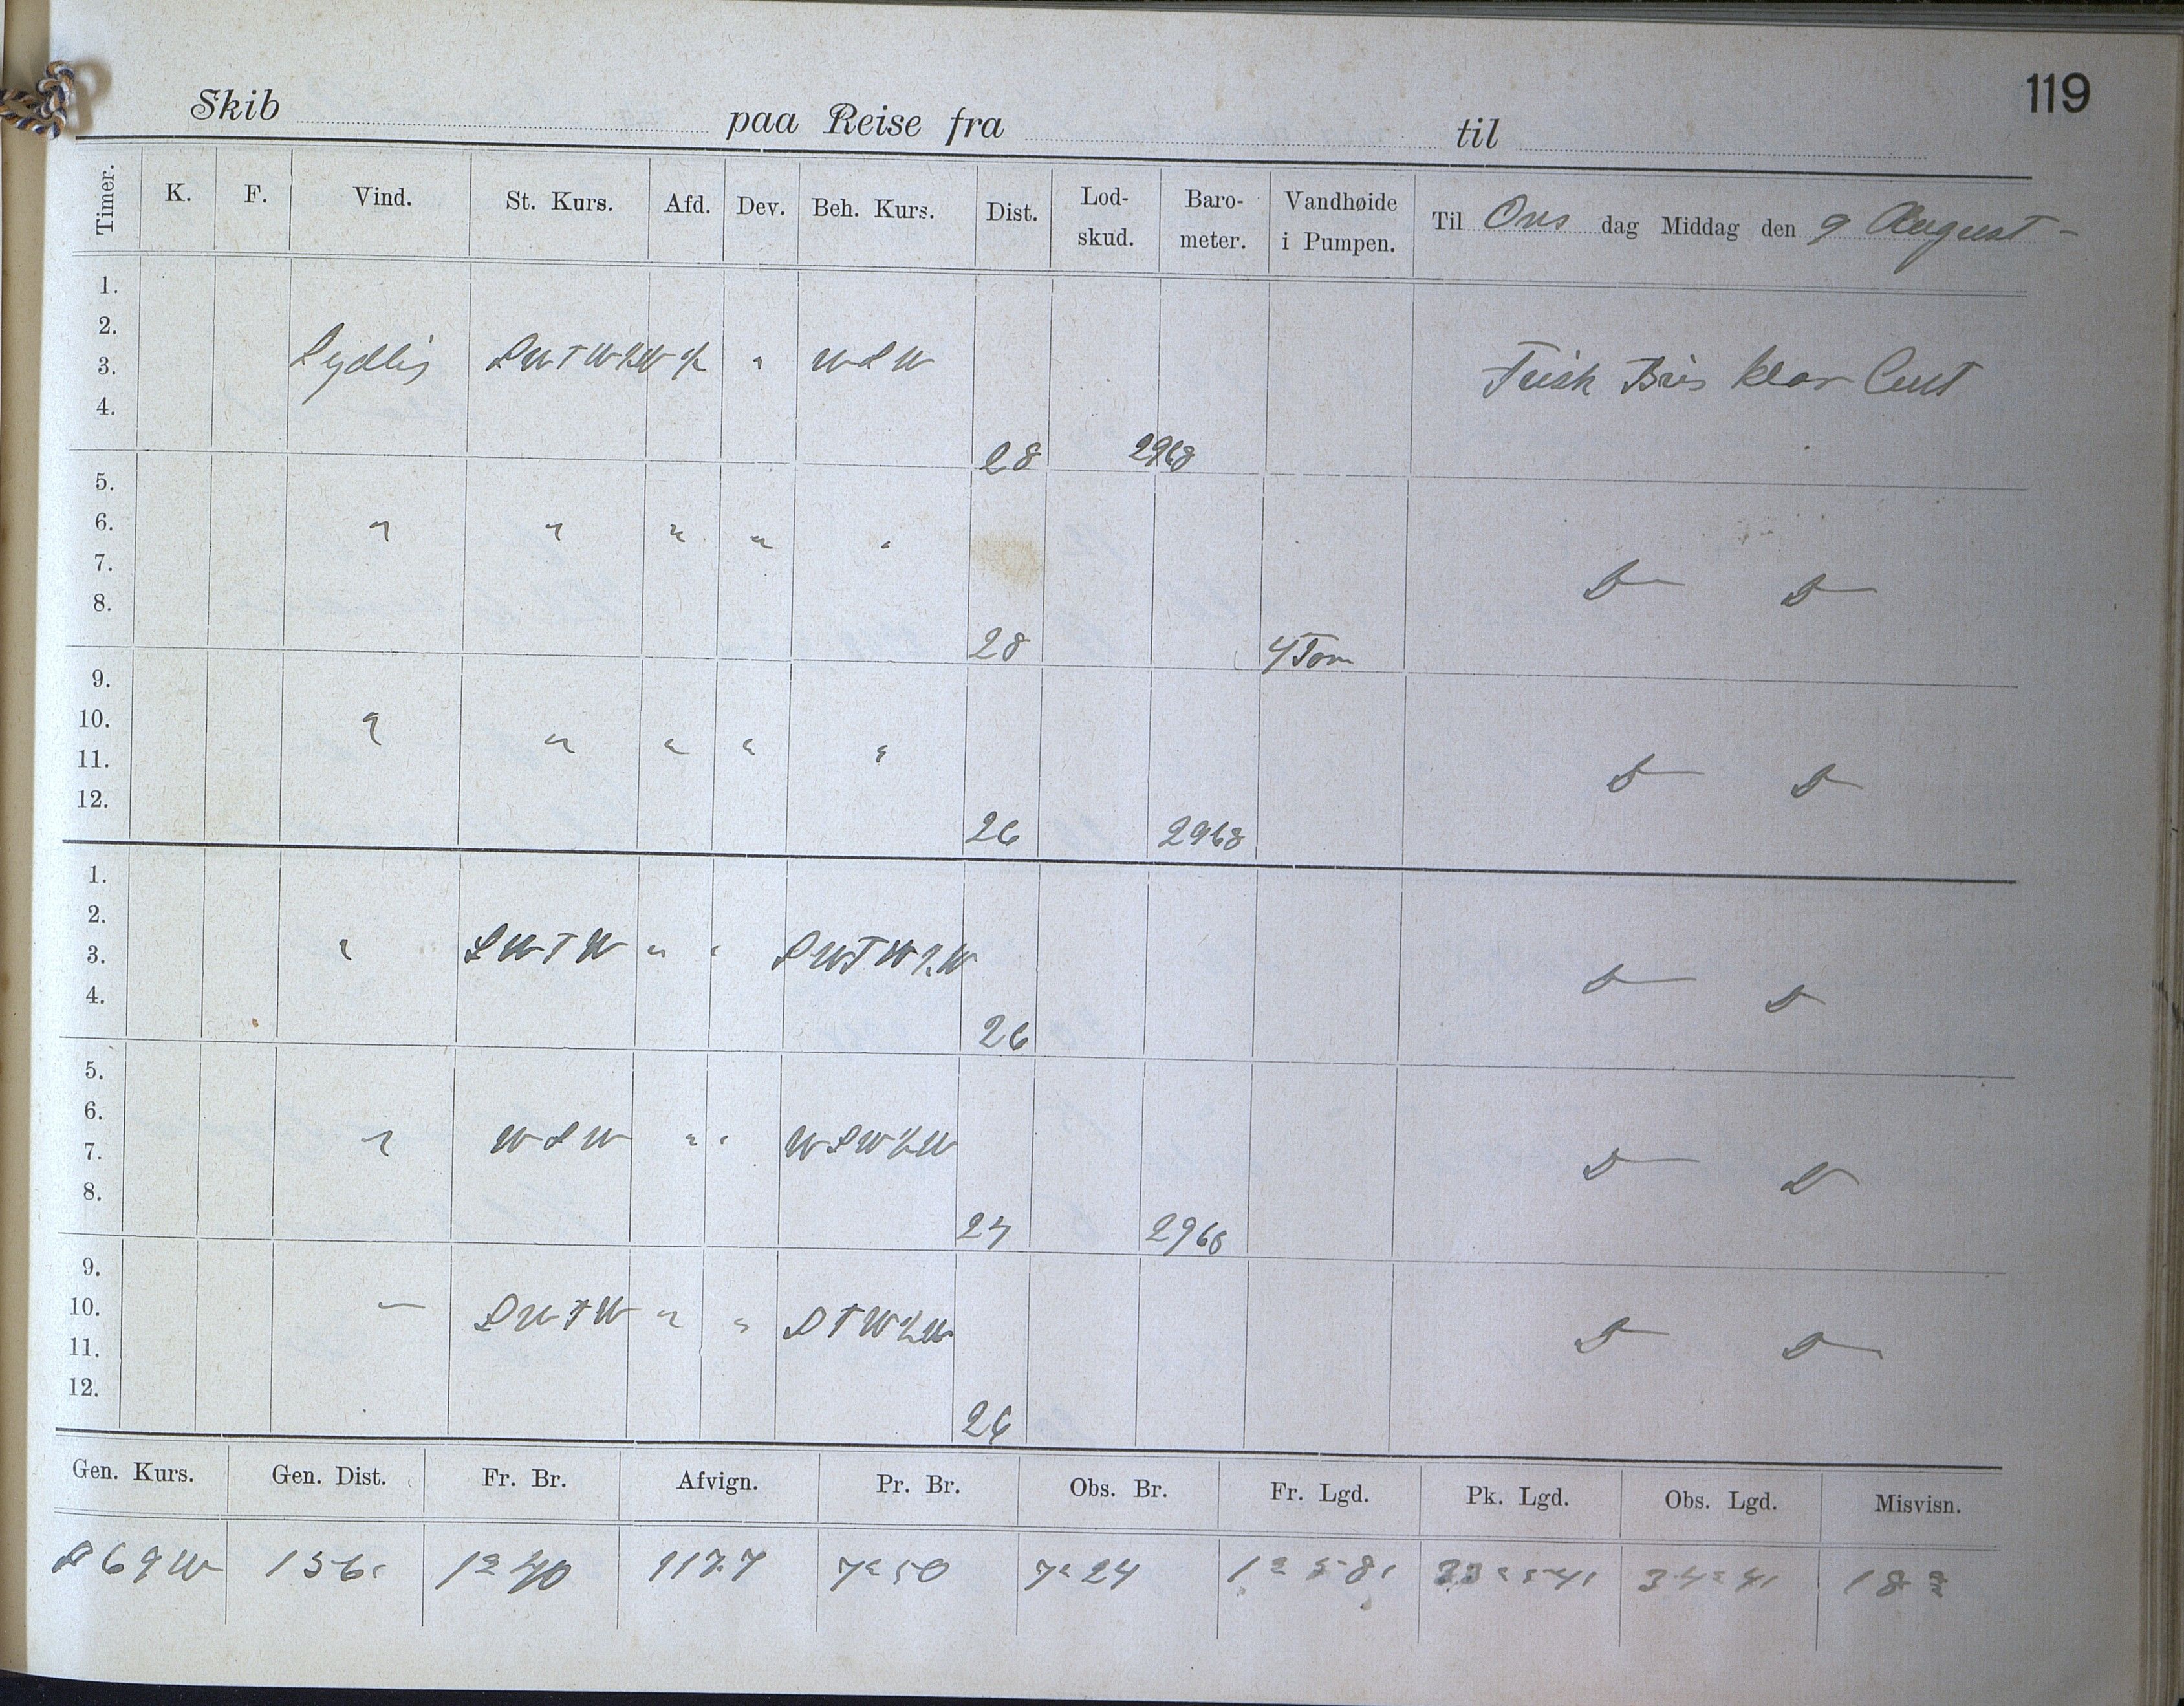 119
Skib paa Reise fra til
Timer. K. F. Vind. St. Kurs. Afd. Dev. Beh. Kurs. Dist. Lod-skud. Baro-meter. Vandhøide i Pumpen. Til Ons dag Middag den 9 August -
1.
2.
3. Sydlig SWTW½W ½ " WSW Frisk Bris klar Luft
4. 28 2968
5.
6. " " " " "
7. D D
8. 28 4 Tom
9.
10. " " " " "
11. D D
12. 26 2968
1.
2.
3. " SWTW " " SWTW½W D D
4. 26
5.
6.
7. " WSW " " WSW½W D D
8. 24 2968
9.
10. " SWTW " " STW½W D D
11.
12. 26
Gen. Kurs. Gen. Dist. Fr. Br. Afvign. Pr. Br. Obs. Br. Fr. Lgd. Pk. Lgd. Obs. Lgd. Misvisn.
S69W 156 1° 40 1177 7° 50 7° 24 1° 58' 33° 54' 34° 4' 18°